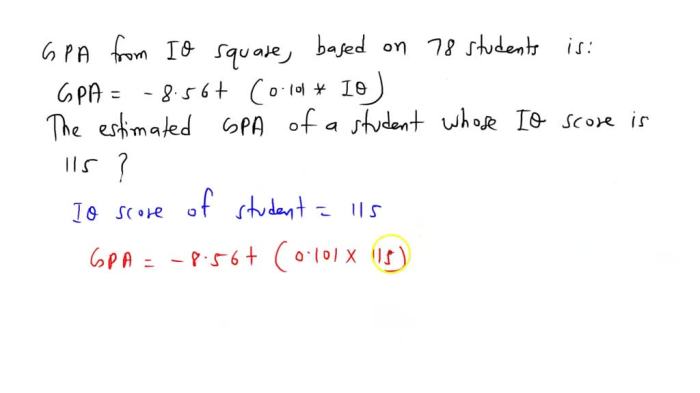 GPA from IQ square, based on 78 students is:
GPA = - 8.56 + (0.101 * IQ)
The estimated GPA of a student whose IQ score is
115 ?
IQ score of student = 115
GPA = - 8.56 + (0.101 × 115)